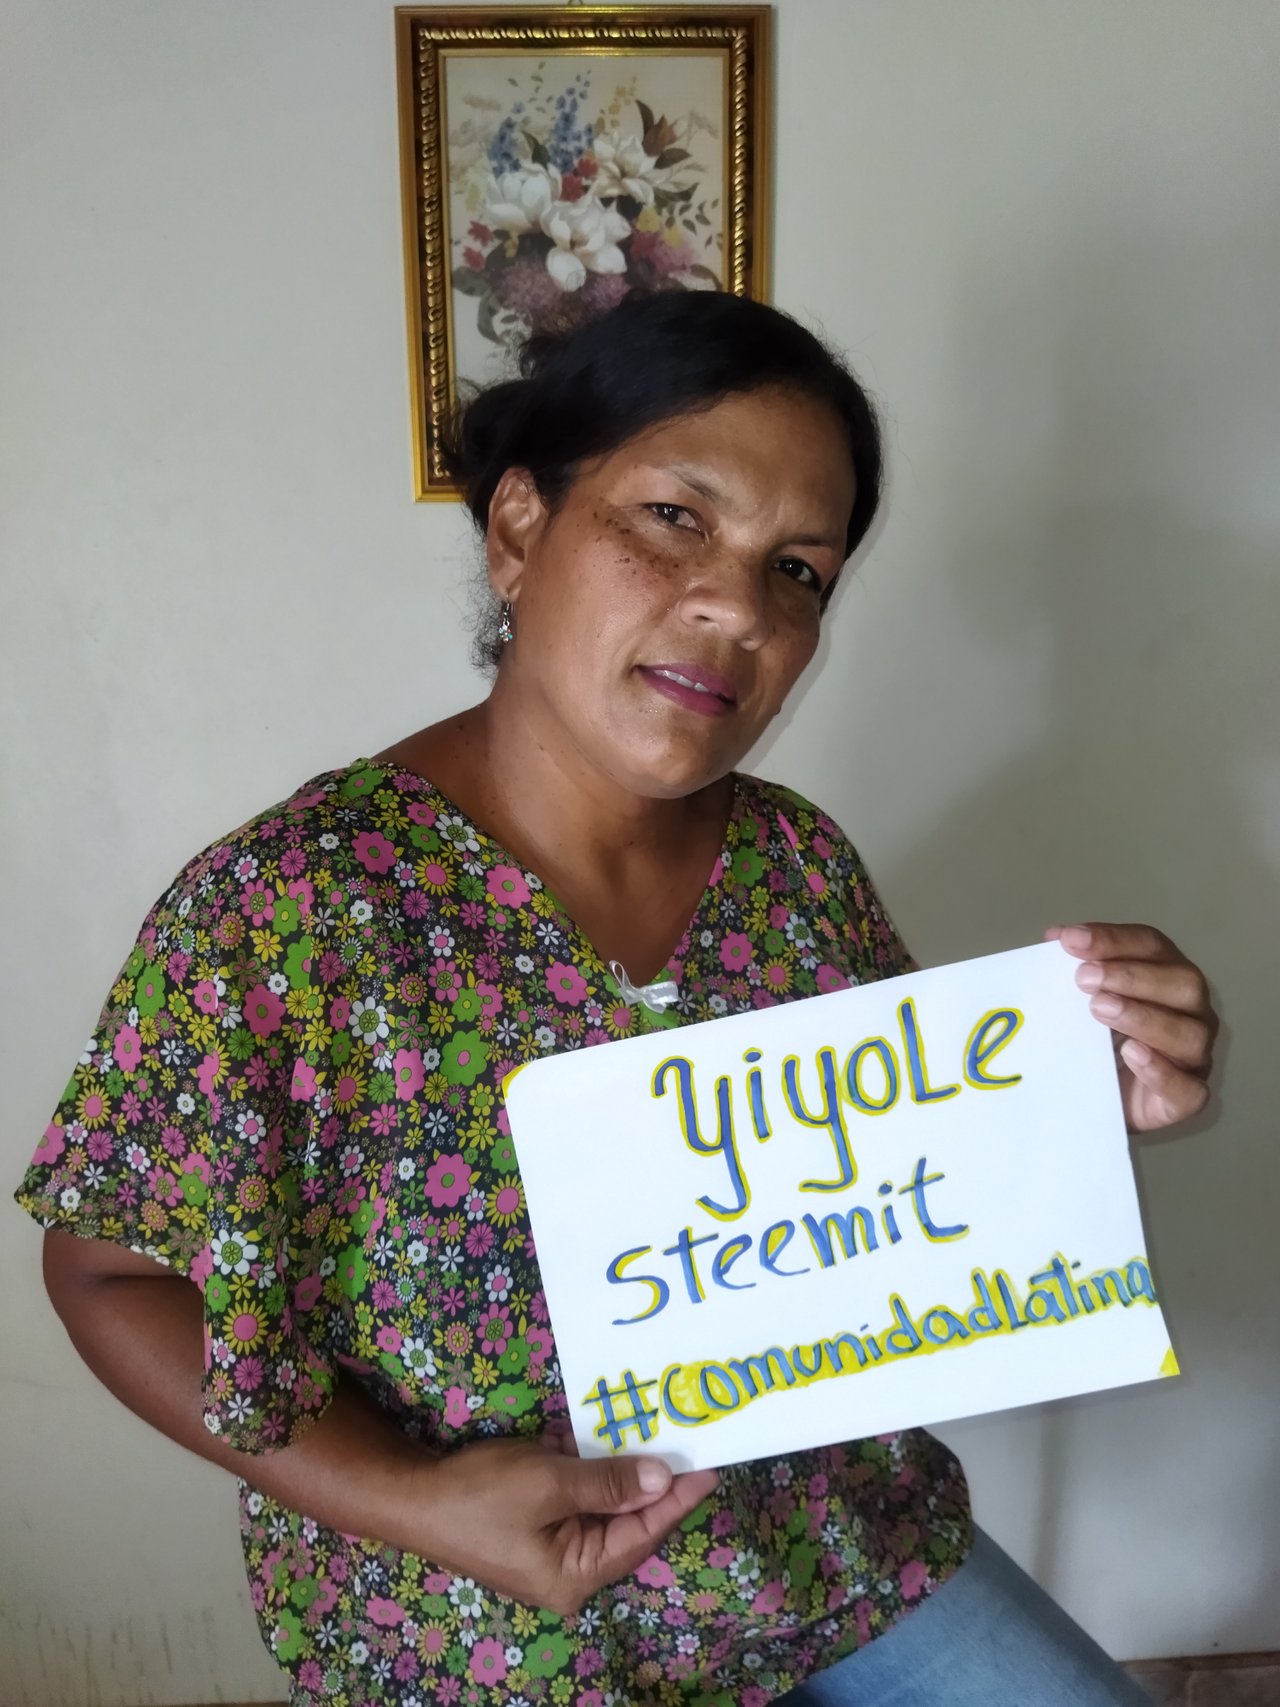 yiyole
steemit
#comunidadLatina